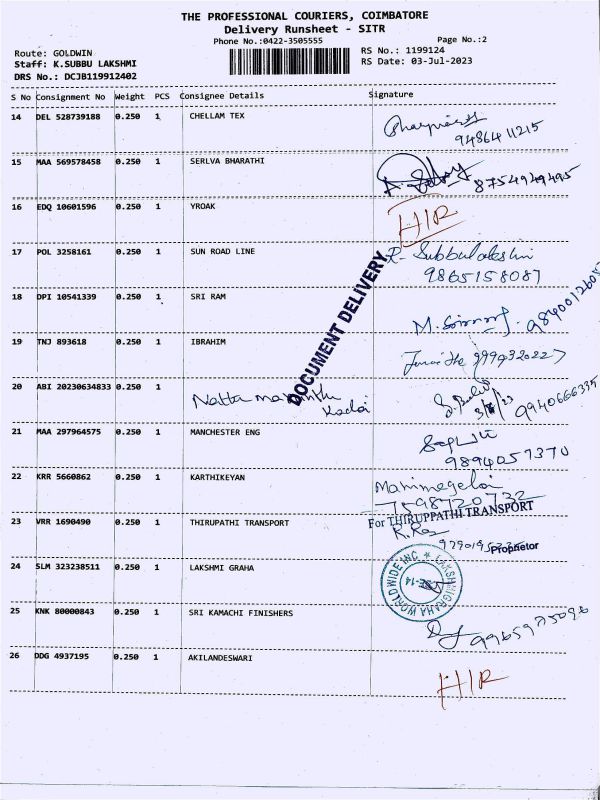 THE PROFESSIONAL COURIERS, COIMBATORE
Delivery Runsheet - SITR
Phone No.:0422-3505555
Page No.:2
Route: GOLDWIN
RS No.: 1199124
Staff: K.SUBBU LAKSHMI
RS Date: 03-Jul-2023
DRS No.: DCJB119912402
S No Consignment No Weight PCS Consignee Details Signature
14 DEL 528739188 0.250 1 CHELLAM TEX
9486411215
15 MAA 569578458 0.250 1 SERLVA BHARATHI
8754949495
16 EDQ 10601596 0.250 1 YROAK HIR
17 POL 3258161 0.250 1 SUN ROAD LINE R- Subbulakshmi
9865158087
DOCUMENT DELIVERY
18 DPI 10541339 0.250 1 SRI RAM
19 TNJ 893618 0.250 1 IBRAHIM
20 ABI 20230634833 0.250 1 Nattu Kadai
9940666335
21 MAA 297964575 0.250 1 MANCHESTER ENG
9894057370
22 KRR 5660862 0.250 1 KARTHIKEYAN Manimegalai
7598720732
For THIRUPPATHI TRANSPORT
23 VRR 1690490 0.250 1 THIRUPATHI TRANSPORT
Proprietor
24 SLM 323238511 0.250 1 LAKSHMI GRAHA
LAKSHMIGRAHA WORLDWIDE INC
CBE-14
25 KNK 80000843 0.250 1 SRI KAMACHI FINISHERS
9965975096
26 DDG 4937195 0.250 1 AKILANDESWARI
HIR